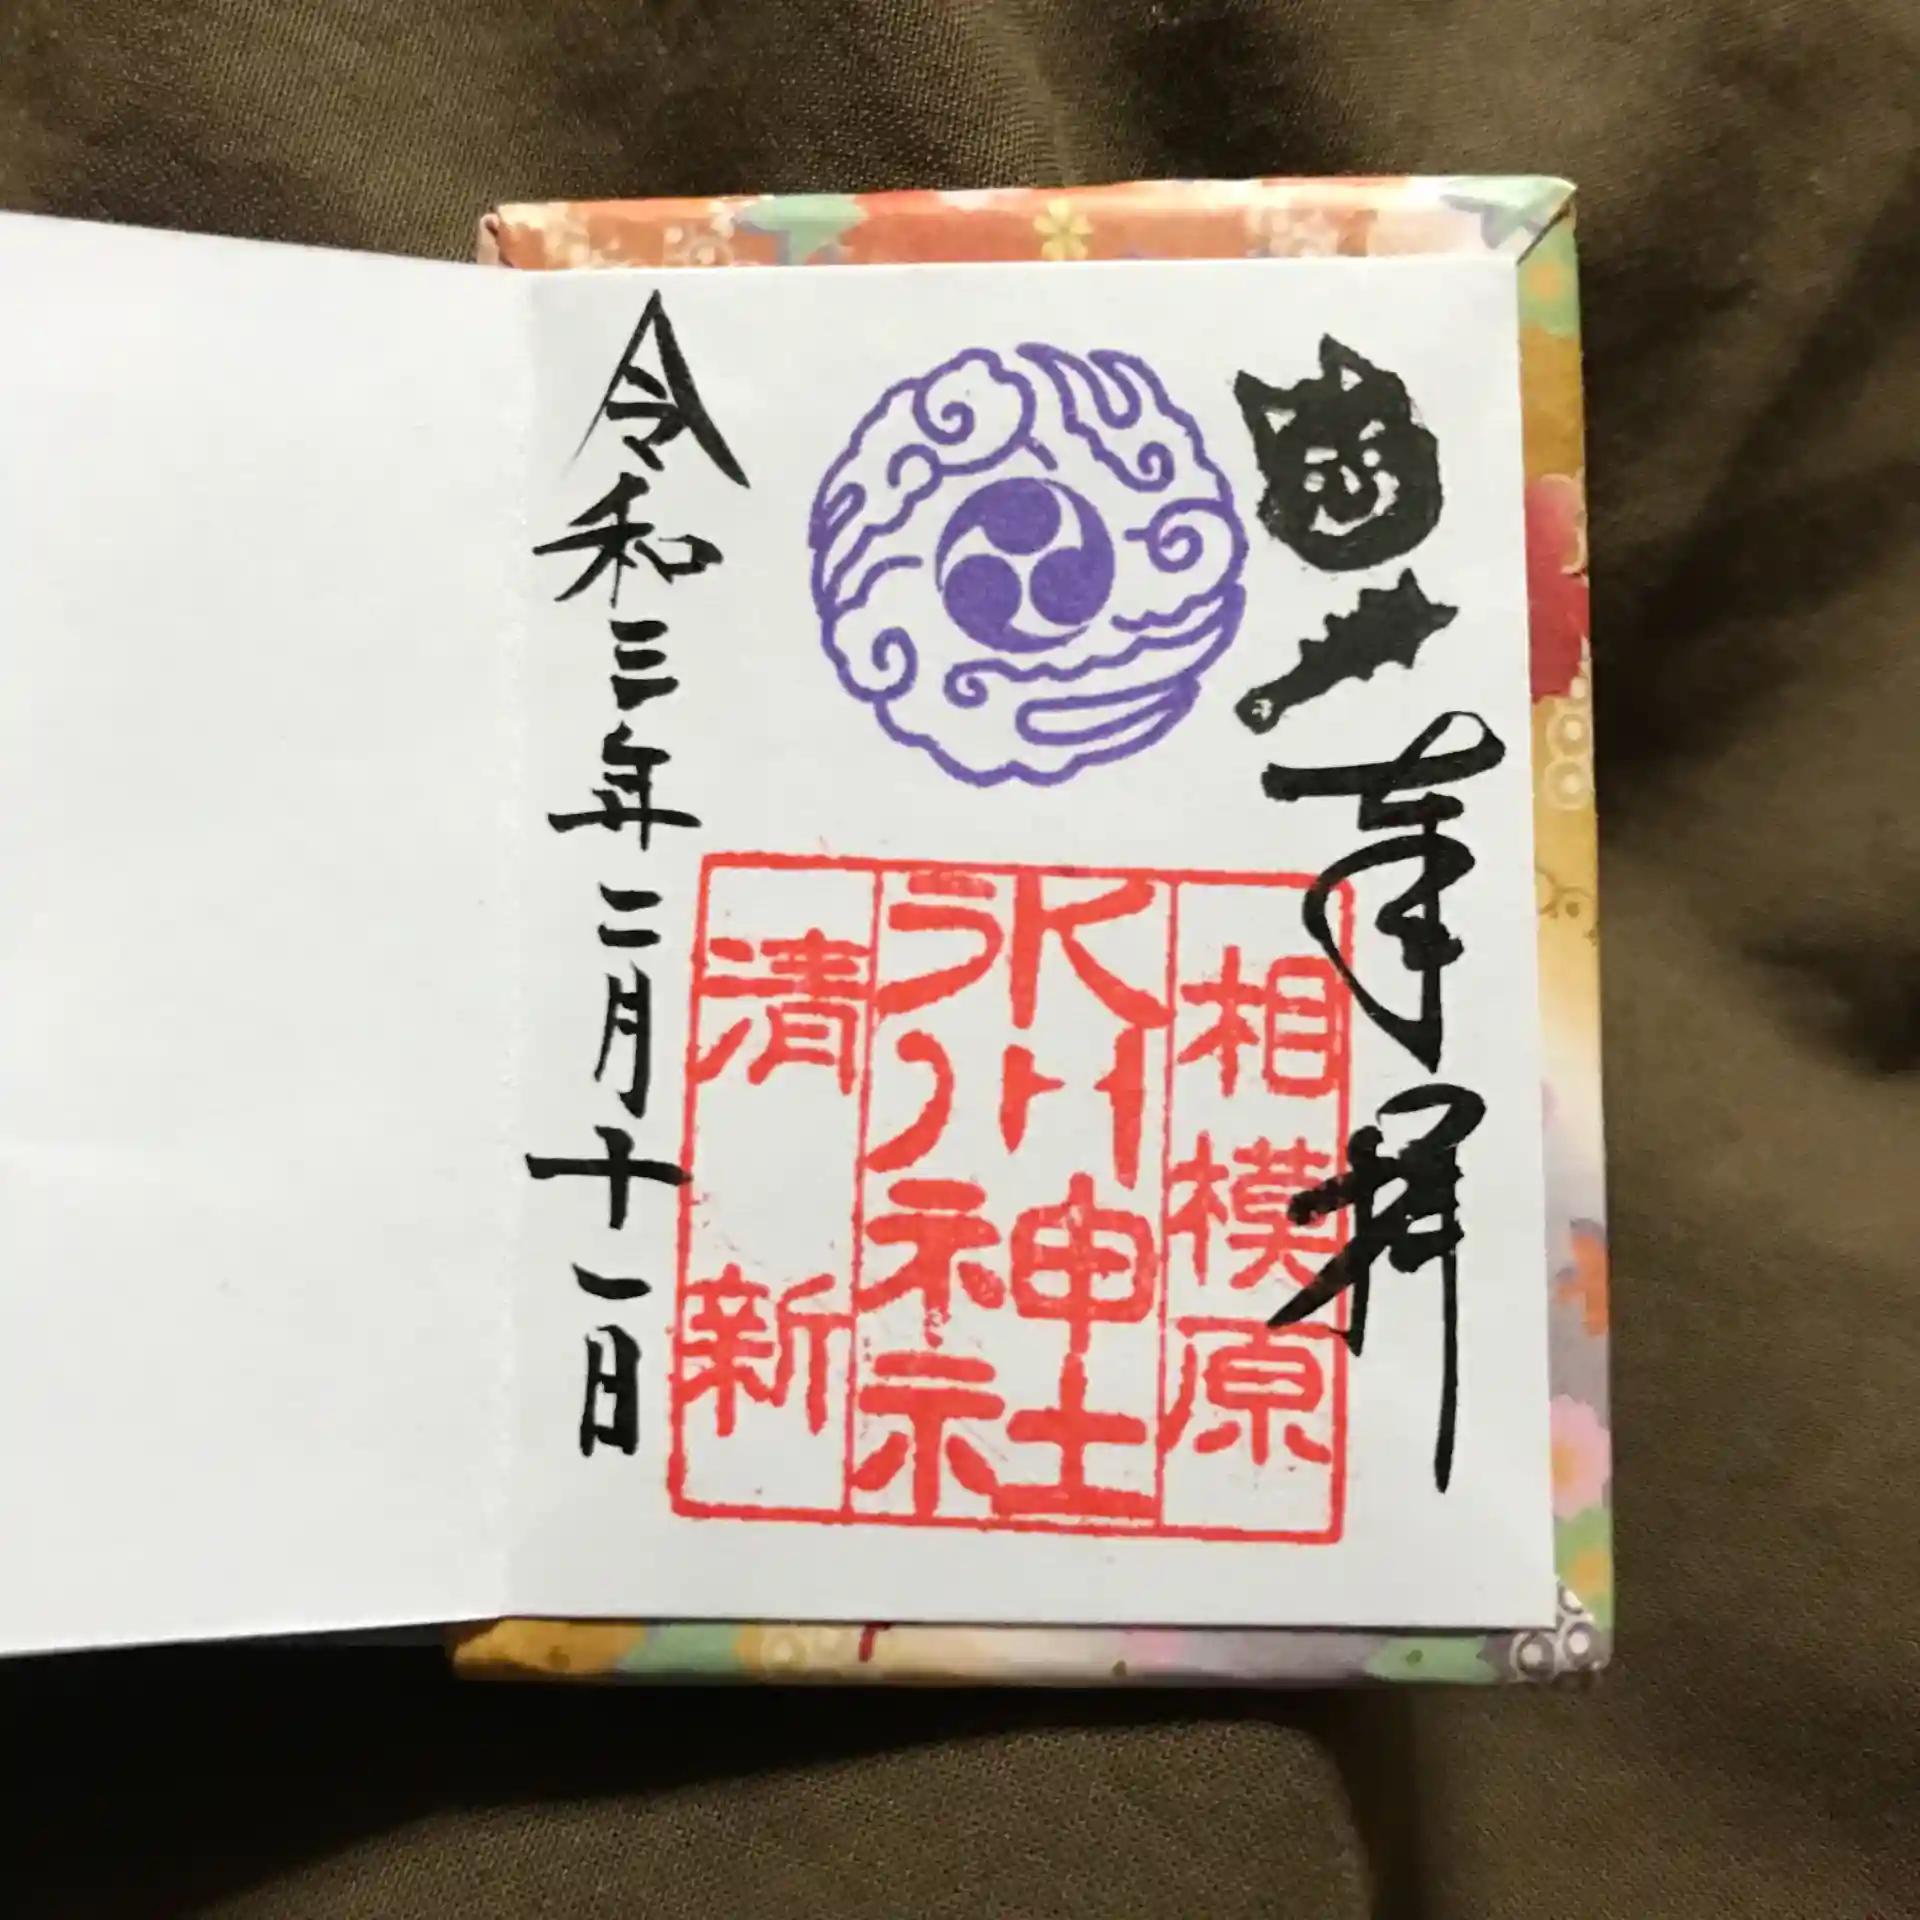 奉拝
相模原
氷川神社
清新
令和三年二月十一日